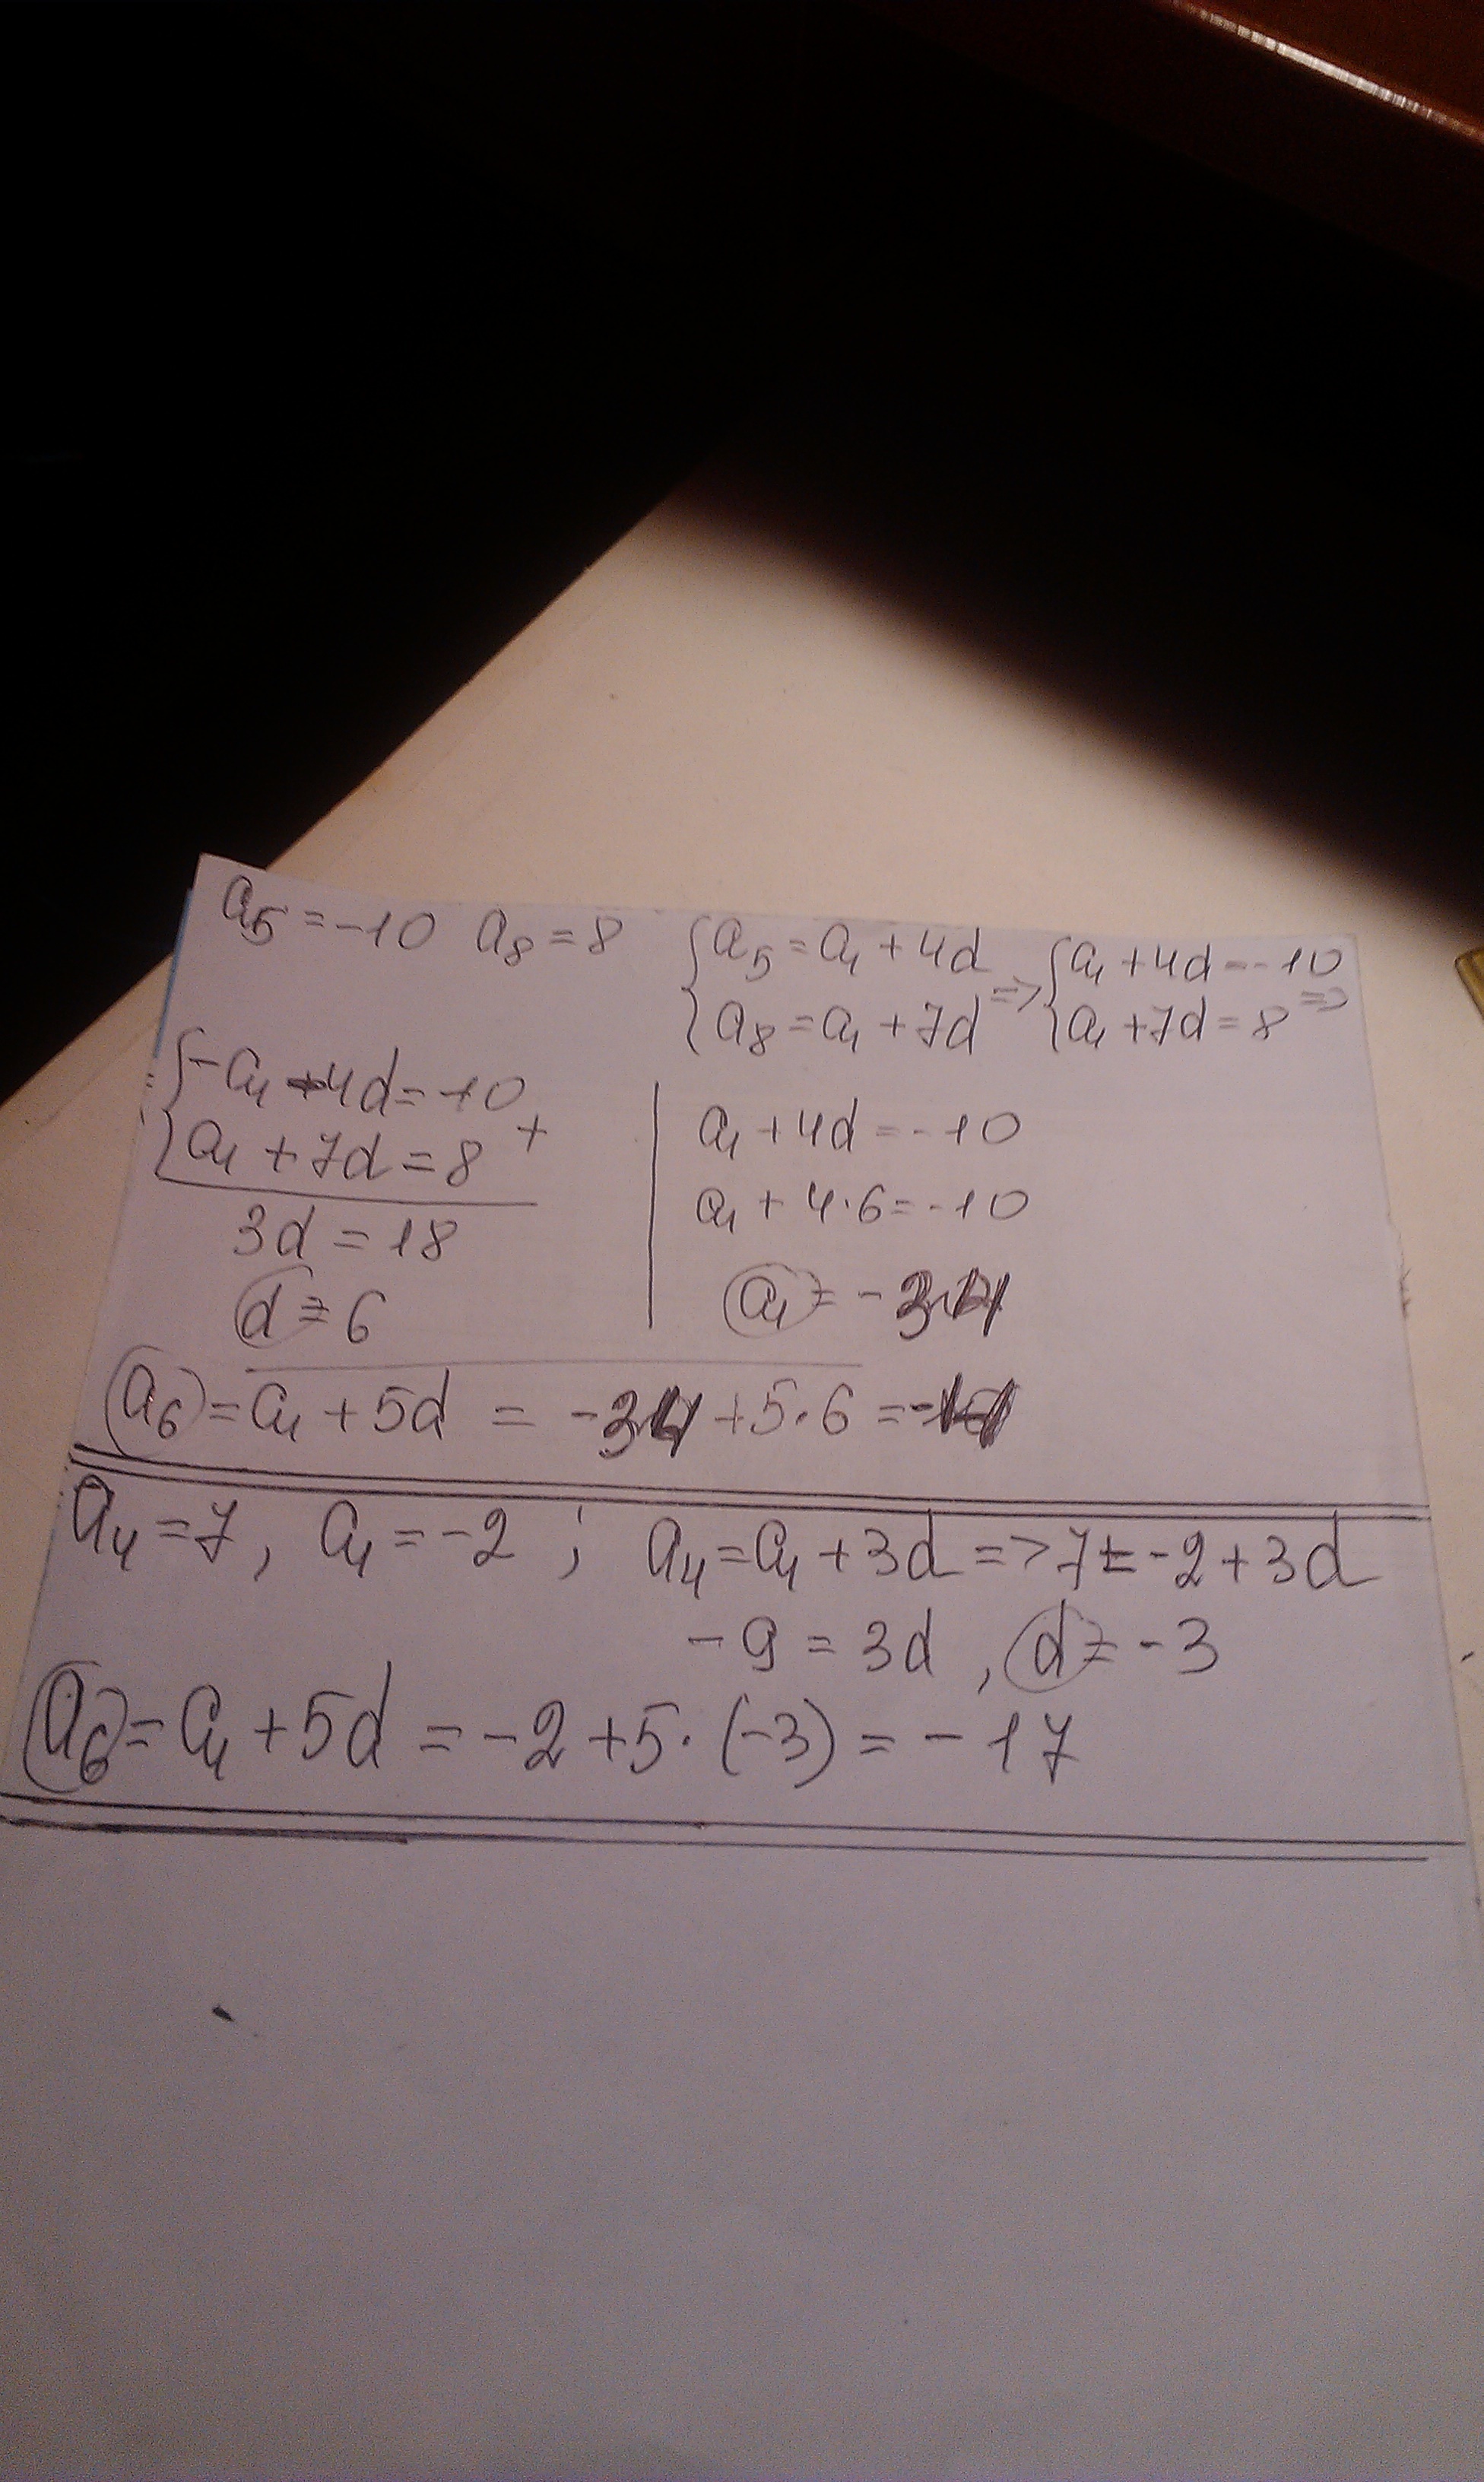 a₅ = -10 a₈ = 8 { a₅ = a₁ + 4d => { a₁ + 4d = -10
{ a₈ = a₁ + 7d { a₁ + 7d = 8 =>
{ -a₁ - 4d = 10
{ a₁ + 7d = 8 +
3d = 18
d = 6
a₁ + 4d = -10
a₁ + 4·6 = -10
a₁ = -34
a₆ = a₁ + 5d = -34 + 5·6 =
a₄ = 7, a₁ = -2 ; a₄ = a₁ + 3d => 7 = -2 + 3d
-9 = 3d , d = -3
a₆ = a₁ + 5d = -2 + 5·(-3) = -17